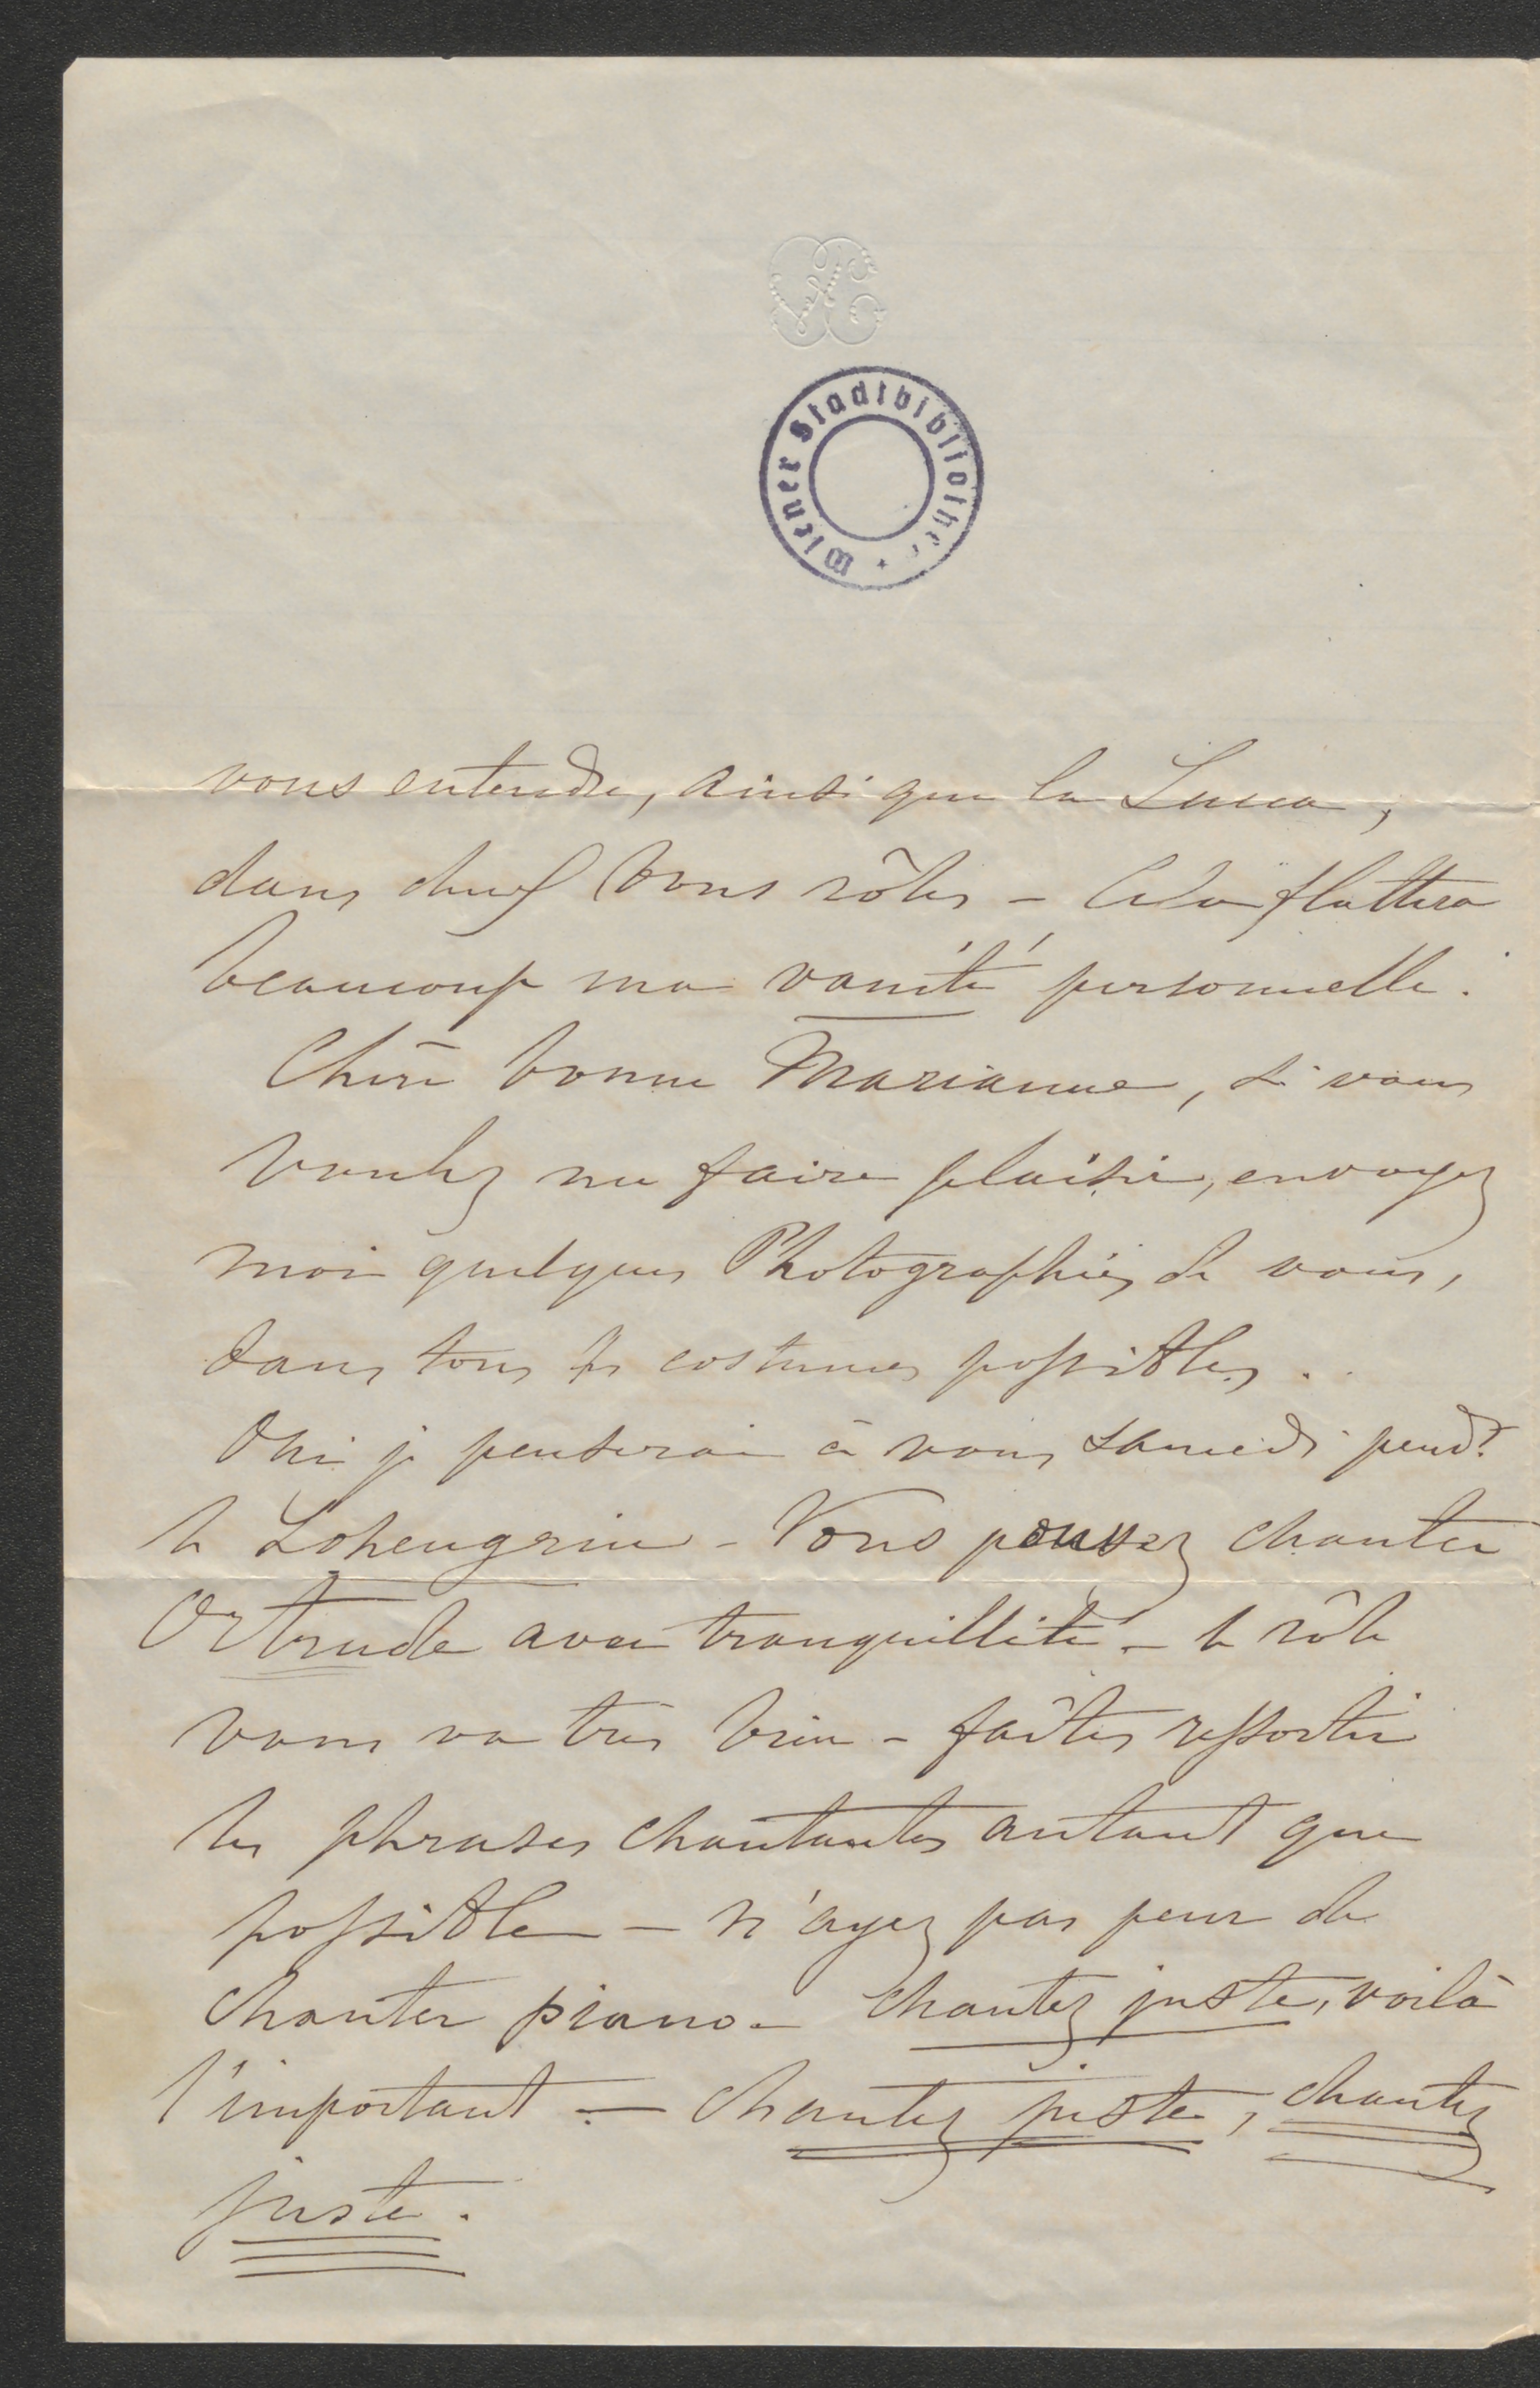 Wiener Stadtbibliothek
vous entendre, ainsi que la Lucca,
dans deux bons rôles – Cela flattera
beaucoup ma vanité personnelle.
Chère bonne Marianne, si vous
voulez me faire plaisir, envoyez
moi quelques Photographies de vous,
dans tous les costumes possibles.
Oui je penserai à vous samedi pendt.
le Lohengrin – Vous pouvez chanter
Ortrude avec tranquillité – le rôle
vous va très bien – faites ressortir
les phrases chantantes autant que
possible – n'ayez pas peur de
chanter piano – chantez juste, voilà
l'important – chantez juste, chantez
juste.